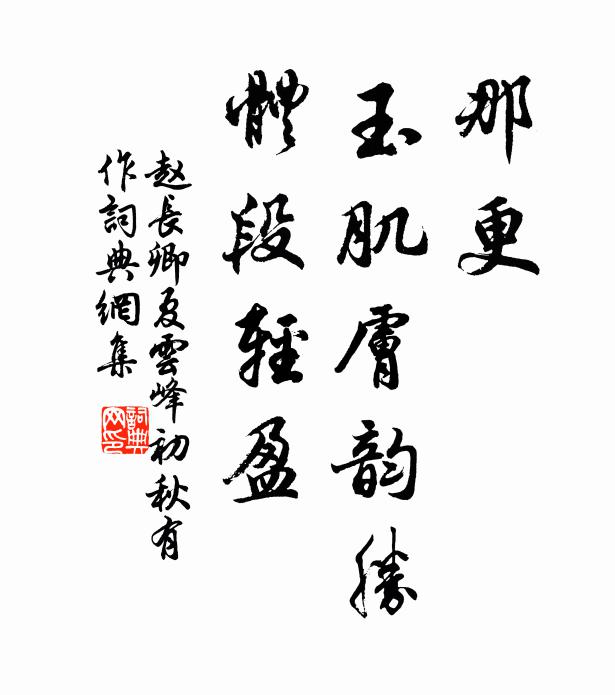 那更
玉肌膚韵勝
體段輕盈
赵長卿夏雲峰初秋有
作詞典網集
詞典
网印